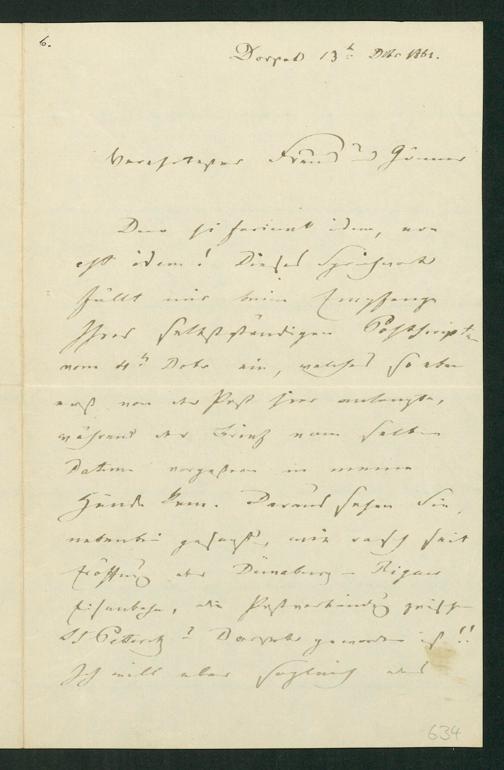 6.
Dorpat 13t Dbr 1861.
Verehrtester Freund und Gönner
Duo si faciunt idem, non
est idem! Dieses Sprichwort
fällt mir beim Empfange
Ihres selbstständigen Postscriptes
vom 4t Dbr ein, welches so eben
erst von der Post hier anlangte,
während der Brief vom selben
Datum vorgestern in meine
Hände kam. Daraus sehen Sie,
nebenbei gesagt, wie rasch seit
Eröffnung der Dünaburg-Rigaer
Eisenbahn, die Postverbindung zwischen
St Petersb. Dorpats geworden ist!!
Ich will aber sogleich
634